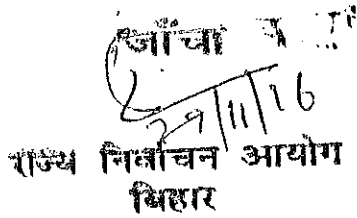 जाँचा
29/11/16
राज्य निर्वाचन आयोग
बिहार